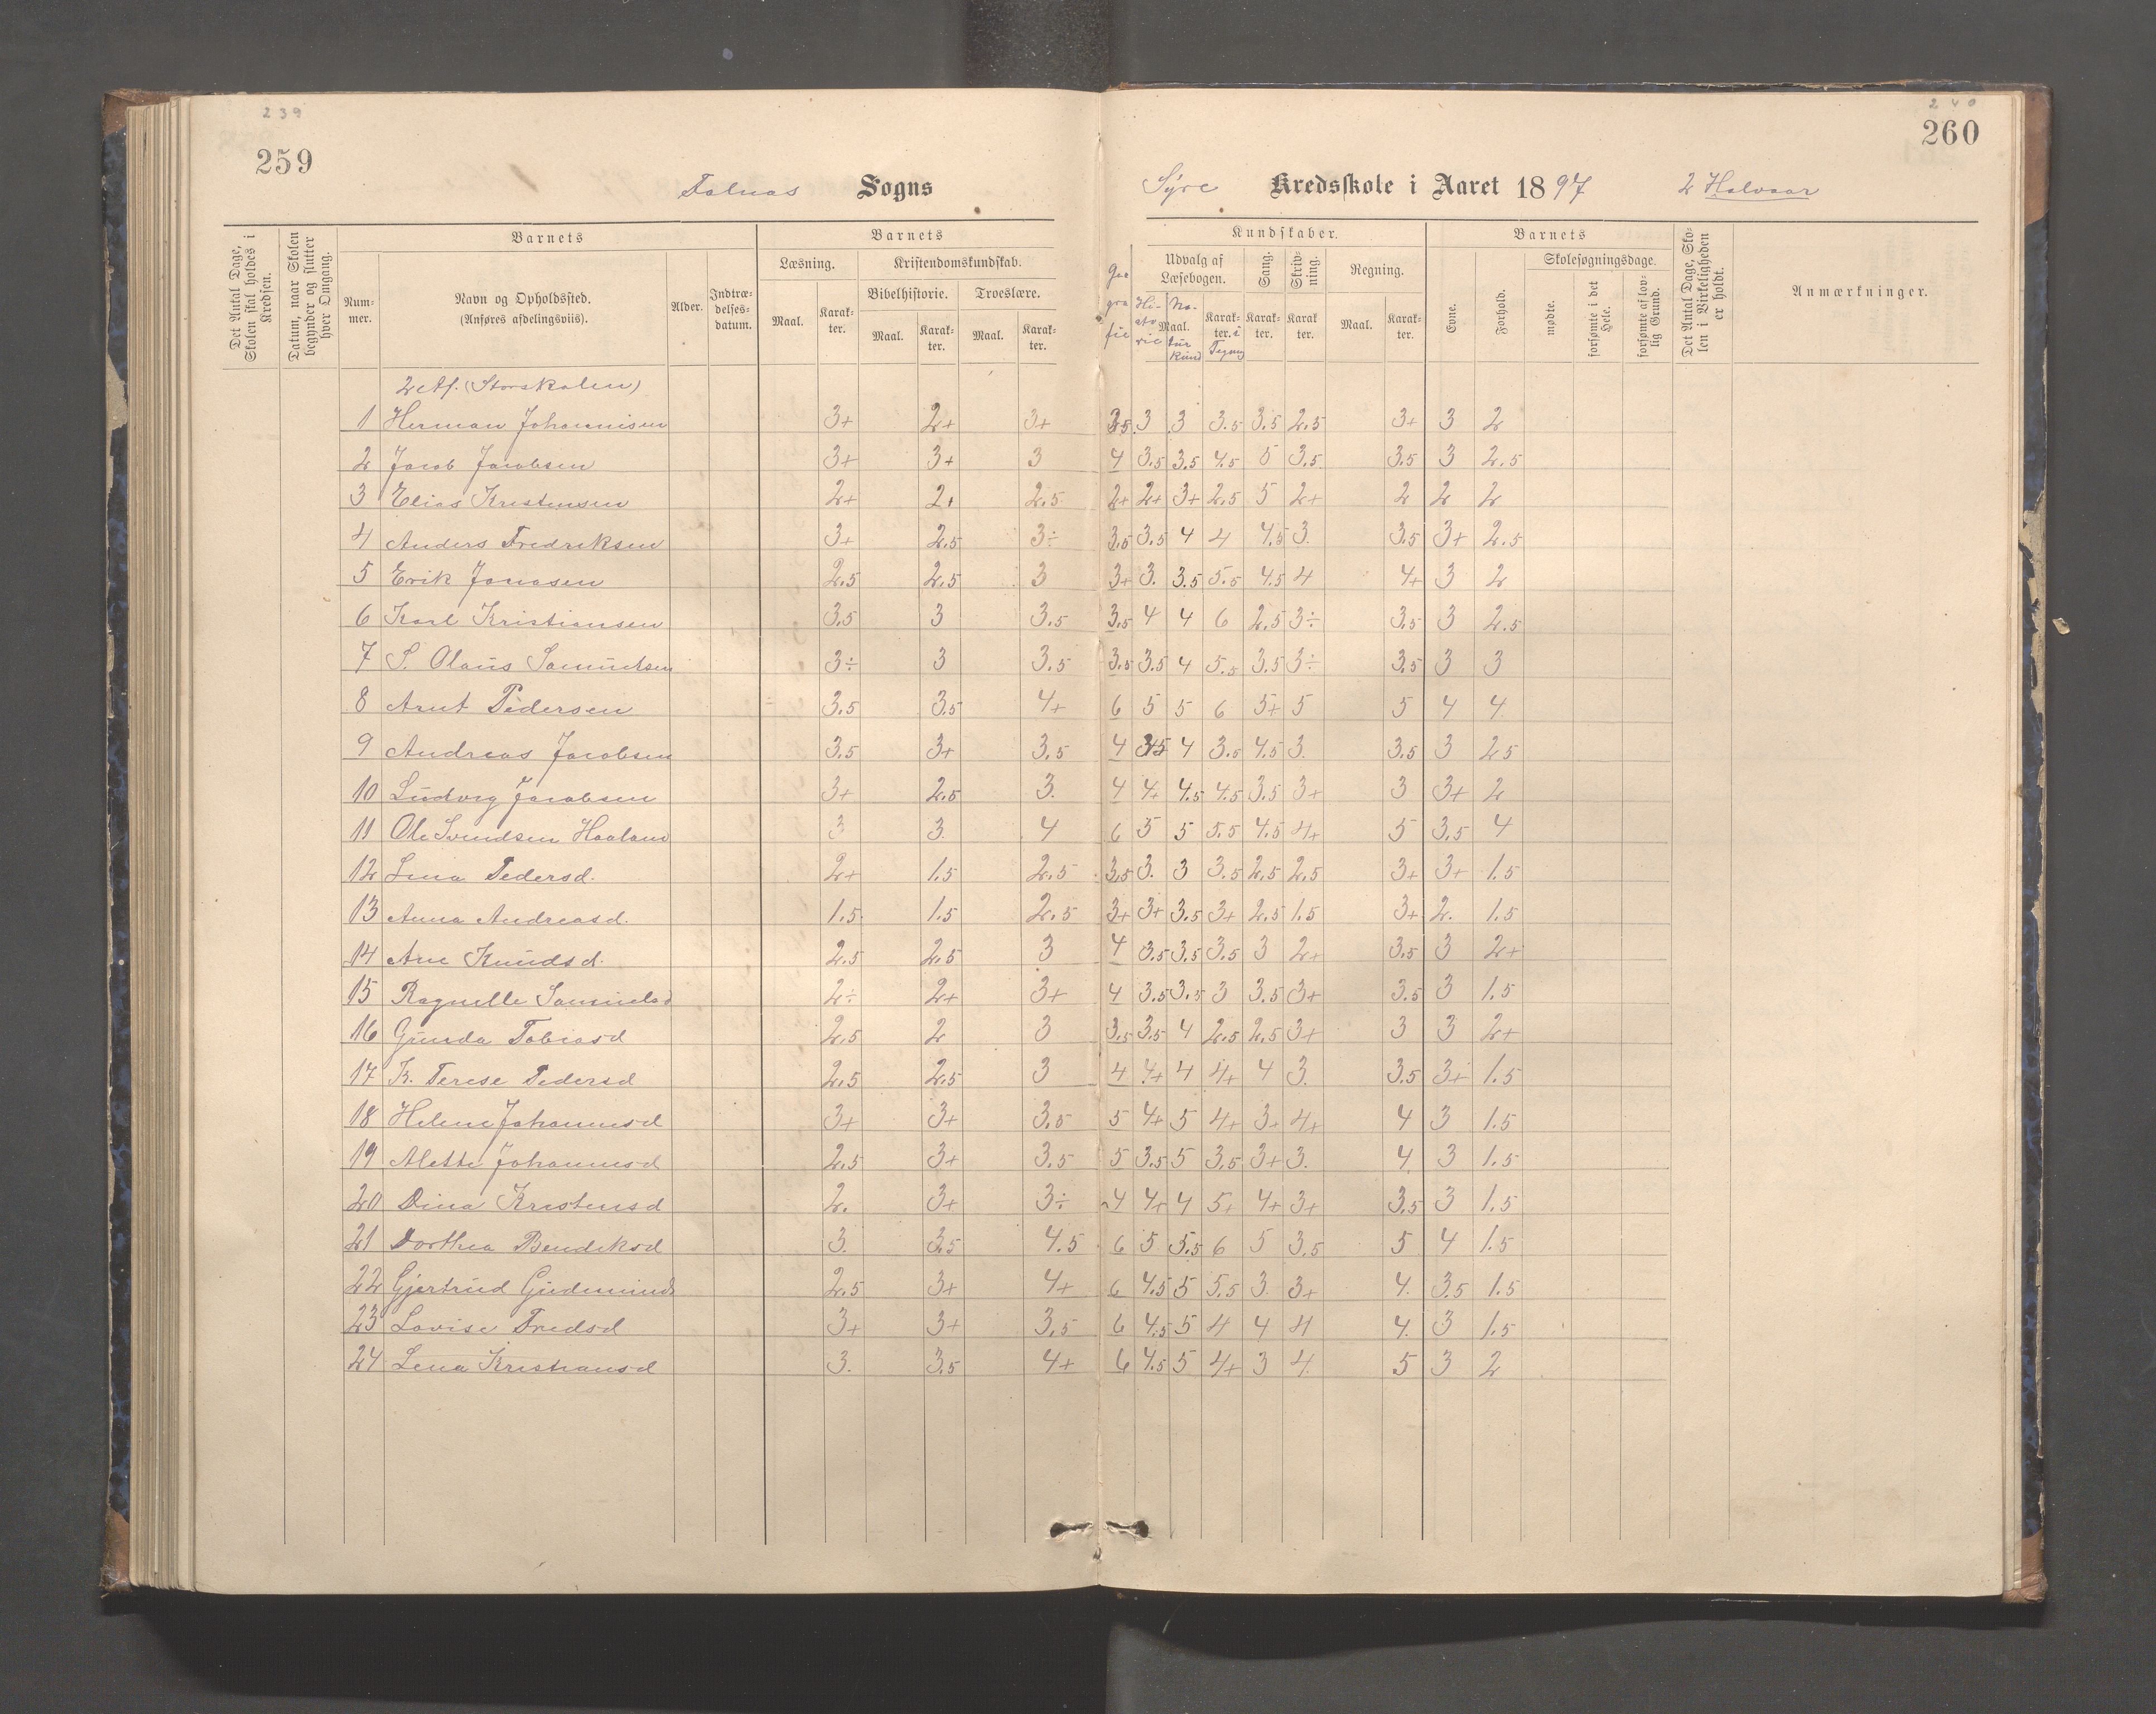 239
259
Falnæs Sogns
240
260
Syre Kredsskole i Aaret 1897 2 Halvaar
Det Antal Dage, Skolen skal holdes i Kredsen.
Datum, naar Skolen begynder og slutter hver Omgang.
Barnets
Nummer.
Navn og Opholdssted.
(Anføres afdelingsviis).
Alder.
Indtrædelsesdatum.
Barnets
Læsning.
Maal.
Karakter.
Kristendomskundskab.
Bibelhistorie.
Maal.
Karakter.
Troeslære.
Maal.
Karakter.
Kundskaber.
Geografie
Udvalg af Læsebogen.
Historie
Maal.
Naturkund
Karakter. i Tegning
Sang.
Karakter.
Skrivning.
Karakter.
Regning.
Maal.
Karakter.
Barnets
Evne.
Forhold.
Skolesøgningsdage.
mødte.
forsømte i det Hele.
forsømte af lovlig Grund.
Det Antal Dage, Skolen i Virkeligheden er holdt.
Anmærkninger.
2 Af. (Storskolen)
1 Herman Johannisen 3+ 2+ 3+ 3.5 3 3 3.5 3.5 2.5 3+ 3 2
2 Jacob Jacobsen 3+ 3+ 3 4 3.5 3.5 4.5 5 3.5 3.5 3 2.5
3 Elias Kristensen 2+ 2+ 2.5 2+ 2+ 3+ 2.5 5 2+ 2 2 2
4 Anders Fredriksen 3+ 2.5 3÷ 3.5 3.5 4 4 4.5 3. 3.5 3+ 2.5
5 Erik Jonasen 2.5 2.5 3 3+ 3. 3.5 5.5 4.5 4 4+ 3 2
6 Karl Kristiansen 3.5 3 3.5 3.5 4 4 6 2.5 3÷ 3.5 3 2.5
7 S. Olaus Samuelsen 3÷ 3 3.5 3.5 3.5 4 5.5 3.5 3÷ 3.5 3 3
8 Arnt Pedersen 3.5 3.5 4+ 6 5 5 6 5+ 5 5 4 4
9 Andreas Jacobsen 3.5 3+ 3.5 4 3.5 4 3.5 4.5 3. 3.5 3 2.5
10 Ludvig Jacobsen 3+ 2.5 3. 4 4+ 4.5 4.5 3.5 3+ 3 3+ 2
11 Ole Svendsen Haaland 3 3. 4 6 5 5 5.5 4.5 4+ 5 3.5 4
12 Lina Pedersd. 2+ 1.5 2.5 3.5 3. 3 3.5 2.5 2.5 3+ 3+ 1.5
13 Anna Andreasd. 1.5 1.5 2.5 3+ 3+ 3.5 3+ 2.5 1.5 3+ 2. 1.5
14 Ane Knudsd. 2.5 2.5 3 4 3.5 3.5 3.5 3 2+ 3.5 3 2+
15 Ragnille Samuelsd 2÷ 2+ 3+ 4 3.5 3.5 3 3.5 3+ 3.5 3 1.5
16 Gunda Tobiasd 2.5 2 3 3.5 3.5 4 2.5 2.5 3+ 3 3 2+
17 K. Terese Pedersd 2.5 2.5 3 4 4+ 4 4+ 4 3. 3.5 3+ 1.5
18 Helene Johannesd 3+ 3+ 3.5 5 4+ 5 4+ 3+ 4+ 4 3 1.5
19 Alette Johannesd 2.5 3+ 3.5 5 3.5 5 3.5 3+ 3. 4 3 1.5
20 Dina Kristensd 2. 3+ 3÷ 4 4+ 4 5+ 4+ 3+ 3.5 3 1.5
21 Dorthea Bendiksd 3. 3.5 4.5 6 5 5.5 6 5 3.5 5 4 1.5
22 Gjertrud Gudmunds 2.5 3+ 4+ 6 4.5 5 5.5 3 3+ 4. 3.5 1.5
23 Lovise Fredsd 3+ 3+ 3.5 6 4.5 5 4 4 4 4. 3 1.5
24 Lena Kristiansd 3. 3.5 4+ 6 4.5 5 4+ 3 4. 5 3 2